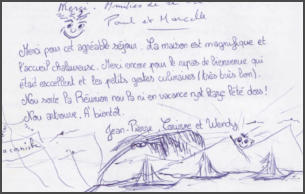 Merci
Paul et Marcelle
Merci pour cet agréable séjour. La maison est magnifique et
l'accueil chaleureux. Merci encore pour le repas de bienvenue qui
était excellent et les petits gestes culinaires (très très bon).
Nou sorte La Réunion nou la ni en vacance
Nou
A bientôt.
Jean-Pierre, et Wendy